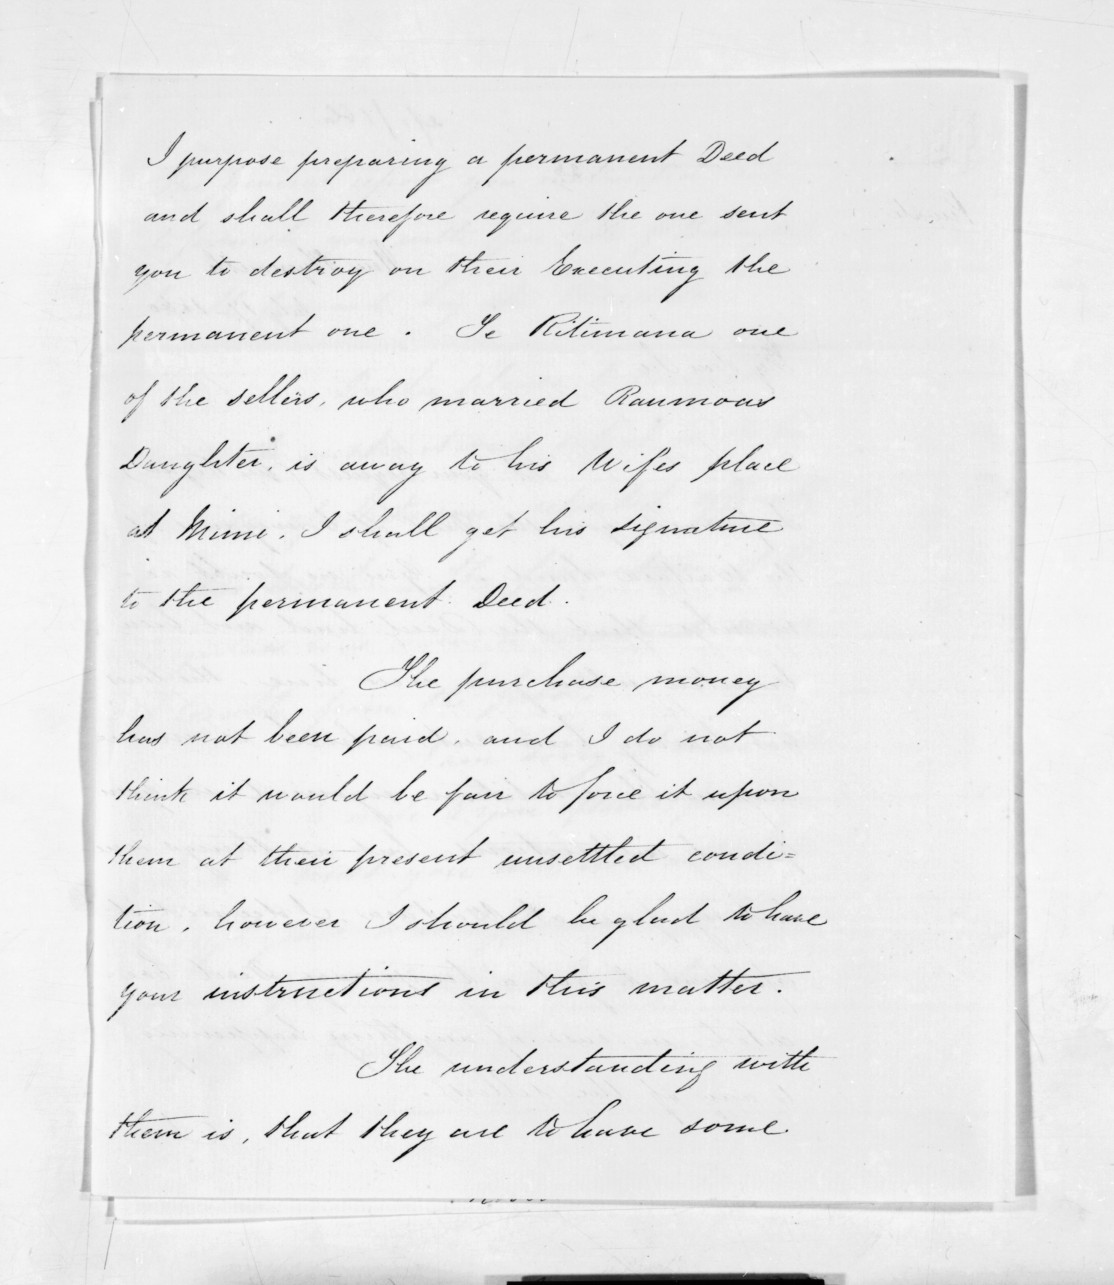 I purpose preparing a permanent Deed
and shall therefore require the one sent
you to destroy on their Executing the
permanent one. Te Ritimana one
of the sellers, who married Raumoas
Daughter, is away to his Wifes place
at Mimi. I shall get his signature
to the permanent Deed.
The purchase money
has not been paid, and I do not
think it would be fair to force it upon
them at their present unsettled condi=
tion, however I should be glad to have
your instructions in this matter.
The understanding with
them is, that they are to have some